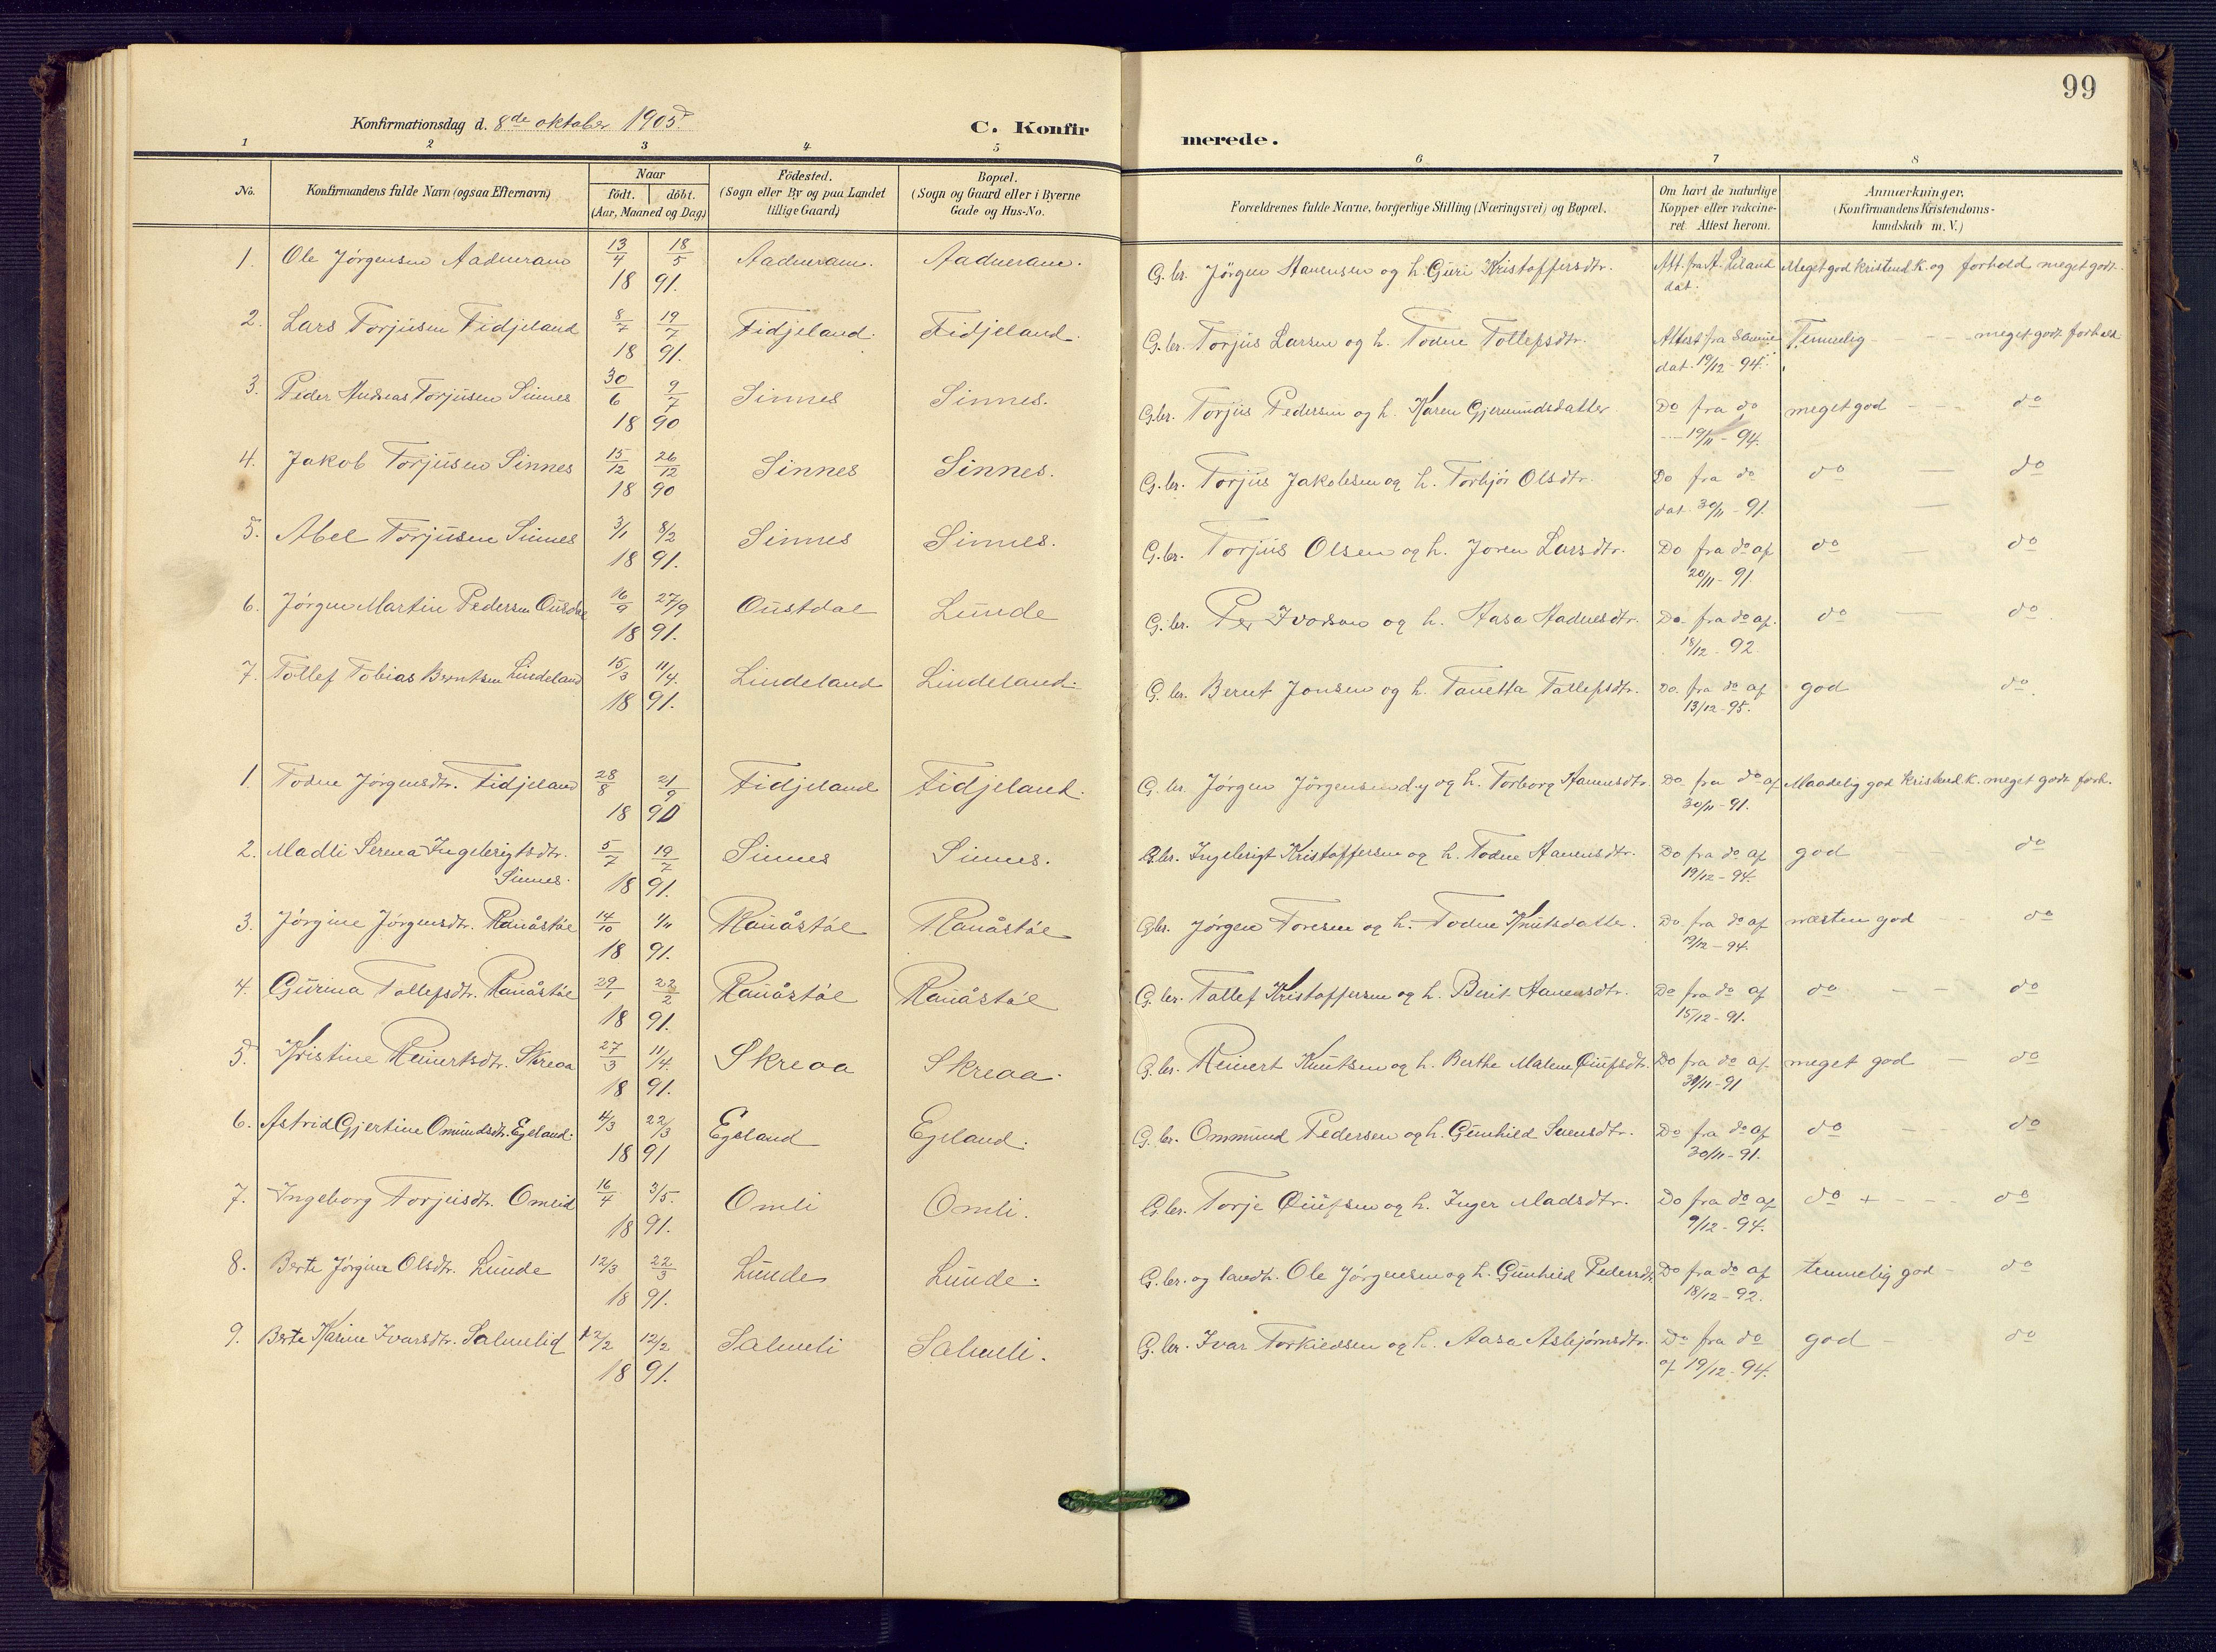 99
Konfirmationsdag d. 8de oktober 1905.
C. Konfirmerede.
1 2 3 4 5 6 7 8
No. | Konfirmandens fulde Navn (ogsaa Efternavn) | Naar födt. | döbt. (Aar, Maaned og Dag) | Födested. (Sogn eller By og paa Landet tillige Gaard) | Bopæl. (Sogn og Gaard eller i Byerne Gade og Hus-No. | Forældrenes fulde Navne, borgerlige Stilling (Næringsvei) og Bopæl. | Om havt de naturlige Kopper eller vakcineret. Attest herom. | Anmærkninger. (Konfirmandens Kristendomskundskab m. V.)
1. Ole Jörgensen Aadneram 13/4 18/5 1891. Aadneram. Aadneram. G.br. Jörgen Hanensen og h. Guri Kristoffersdtr. Att. fra A. Liland dat. Meget god kristend.k. og forhold meget godt.
2. Lars Torjusen Fidjeland 8/7 19/7 1891. Fidjeland. Fidjeland. G.br. Torjus Larsen og h. Todne Tollefsdtr. Attest fra samme dat. 19/12-94. Temmelig - - - meget godt forhold
3. Peder Andreas Torjusen Sinnes 30/6 9/7 1890 Sinnes Sinnes. G.br. Torjus Pedersen og h. Karen Gjermundsdatter Do fra do 19/11-94. meget god - - - do
4. Jakob Torjusen Sinnes 15/12 26/12 1890 Sinnes Sinnes. G.br. Torjus Jakobsen og h. Torbjör Olsdtr. Do fra do dat. 30/11-91. do — do
5. Abel Torjusen Sinnes 3/1 8/2 1891. Sinnes Sinnes. G.br. Torjus Olsen og h. Joren Larsdtr. Do fra do af 20/11-91. do — do
6. Jörgen Martin Pedersen Ousdal 16/9 27/9 1891. Oustdal Lunde G.br. Per Ivarsen og h. Aasa Aadnesdtr. Do. fra do af. 18/12-92. do — do
7. Tollef Tobias Berntsen Lindeland 15/3 11/4. 1891. Lindeland Lindeland. G.br. Bernt Jonsen og h. Tanetta Tallefsdtr. Do. fra do af 13/12-95. god do.
1. Todne Jörgensdtr. Fidjeland 28/8 21/9 1890 Fidjeland Fidjeland. G.br. Jörgen Jörgensen d.y og h. Torborg Hanensdtr. Do fra do af 30/11-91. Maadelig god Kristend.K. meget godt forh.
2. Madli Serena Ingebrigtsdtr. Sinnes. 5/7 19/7 1891. Sinnes Sinnes. G.br. Ingebrigt Kristoffersen og h. Todne Hanensdtr. Do fra do af 19/12-94. god do
3. Jörgine Jörgensdtr. Rauåstöl 14/10 1/11 1891. Rauåstöl Rauåstöl G.br. Jörgen Toresen og h. Todne Knutsdatter. Do fra do af 19/12-94. næsten god do
4. Gurina Tollefsdtr. Rauåstöl 29/1 22/2 1891. Rauåstöl Rauåstöl G.br. Tallef Kristoffersen og h. Berit Hanensdtr. Do fra do af 15/12-91. do - - do
5. Kristine Reinertsdtr. Skreaa 27/3 11/4. 1891. Skreaa Skreaa. G.br. Reinert Knutsen og h. Berthe Malene Qiufsdtr. Do fra do af 30/11-91 meget god — do
6. Astrid Gjertine Omundsdtr. Egeland. 4/3 22/3 1891 Egeland Egeland. G.br. Ommund Pedersen og h. Gunhild Svensdtr. Do fra do af 30/11-91. do - do
7. Ingeborg Torjusdtr. Omlid 16/4 3/5. 1891. Omli Omli. G.br. Torje Qiufsen og h. Inger Madsdtr. Do fra do af 9/12-94. do + - - - do
8. Berte Jörgine Olsdtr. Lunde 12/3 22/3 1891. Lunde Lunde. G.br. og landh. Ole Jörgensen og h. Gunhild Pedersdtr. Do fra do af 18/12-92. temmelig god - do
9. Berte Karine Ivarsdtr. Salmelid 2/2 12/2 1891. Salmeli Salmeli. G.br. Ivar Torkildsen og h. Aasa Asbjörnsdtr. Do fra do af 19/12-94. god - do